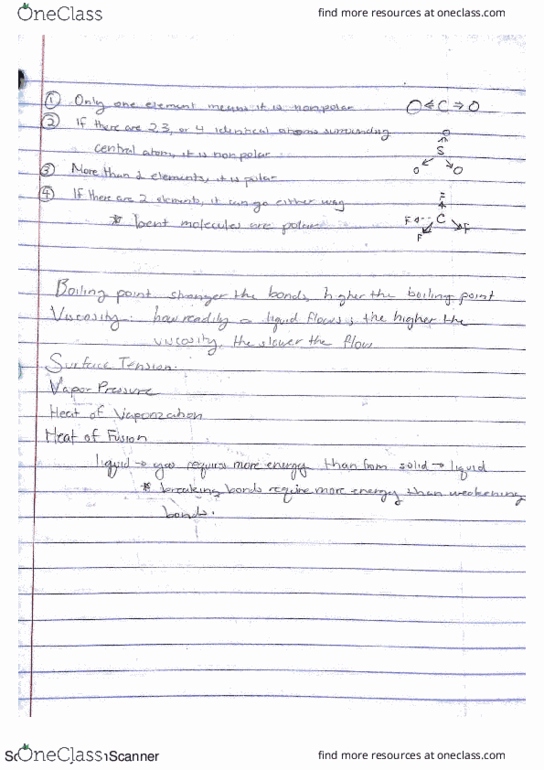 OneClass find more resources at oneclass.com
① Only one element means it is nonpolar O C O
② If there are 2 3, or 4 identical atoms surrounding
central atom, it is nonpolar
O
S
O O
③ More than 2 elements, it is polar
④ If there are 2 elements, it can go either way
* bent molecules are polar
F
F C F
F
Boiling point stronger the bonds, higher the boiling point
Viscosity: how readily a liquid flows; the higher the
viscosity, the slower the flow
Surface Tension
Vapor Pressure
Heat of Vaporization
Heat of Fusion
liquid → gas requires more energy than from solid → liquid
* breaking bonds require more energy than weakening
bonds.
OneClass Scanner find more resources at oneclass.com